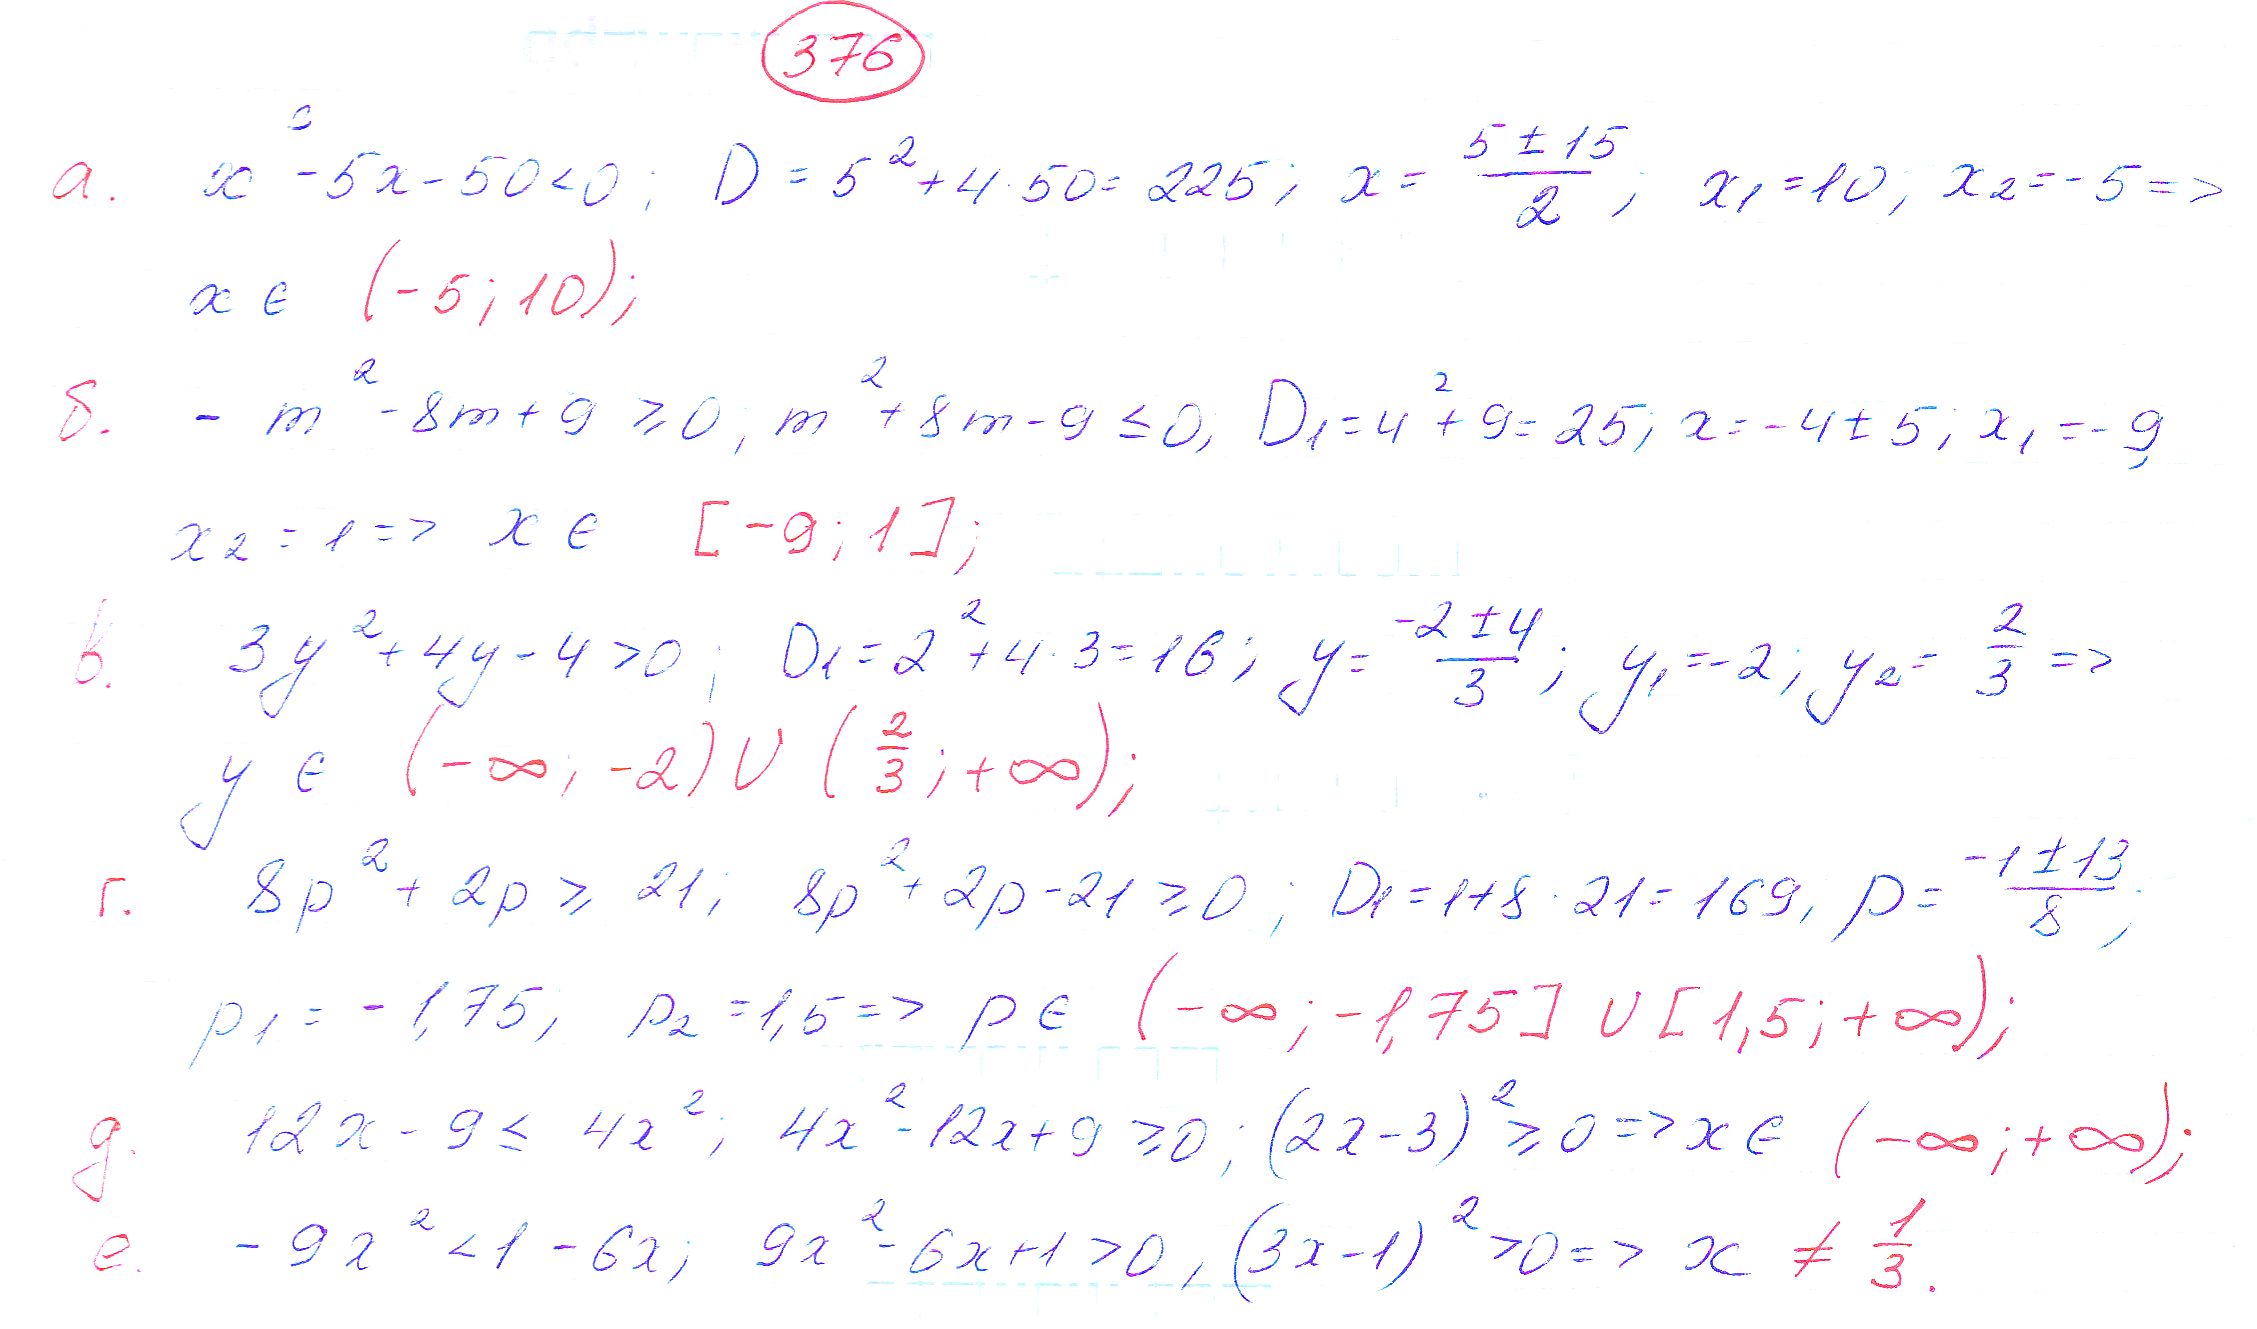 376
а. x² - 5x - 50 < 0; D = 5² + 4·50 = 225; x = (5 ± 15)/2; x₁ = 10; x₂ = -5 =>
x ∈ (-5; 10);
б. - m² - 8m + 9 ≥ 0; m² + 8m - 9 ≤ 0; D₁ = 4² + 9 = 25; x = -4 ± 5; x₁ = -9,
x₂ = 1 => x ∈ [-9; 1];
в. 3y² + 4y - 4 > 0; D₁ = 2² + 4·3 = 16; y = (-2 ± 4)/3; y₁ = -2; y₂ = 2/3 =>
y ∈ (-∞; -2) ∪ (2/3; +∞);
г. 8p² + 2p ≥ 21; 8p² + 2p - 21 ≥ 0; D₁ = 1 + 8·21 = 169, p = (-1 ± 13)/8;
p₁ = -1,75; p₂ = 1,5 => p ∈ (-∞; -1,75] ∪ [1,5; +∞);
д. 12x - 9 ≤ 4x²; 4x² - 12x + 9 ≥ 0; (2x - 3)² ≥ 0 => x ∈ (-∞; +∞);
е. - 9x² < 1 - 6x; 9x² - 6x + 1 > 0, (3x - 1)² > 0 => x ≠ 1/3.